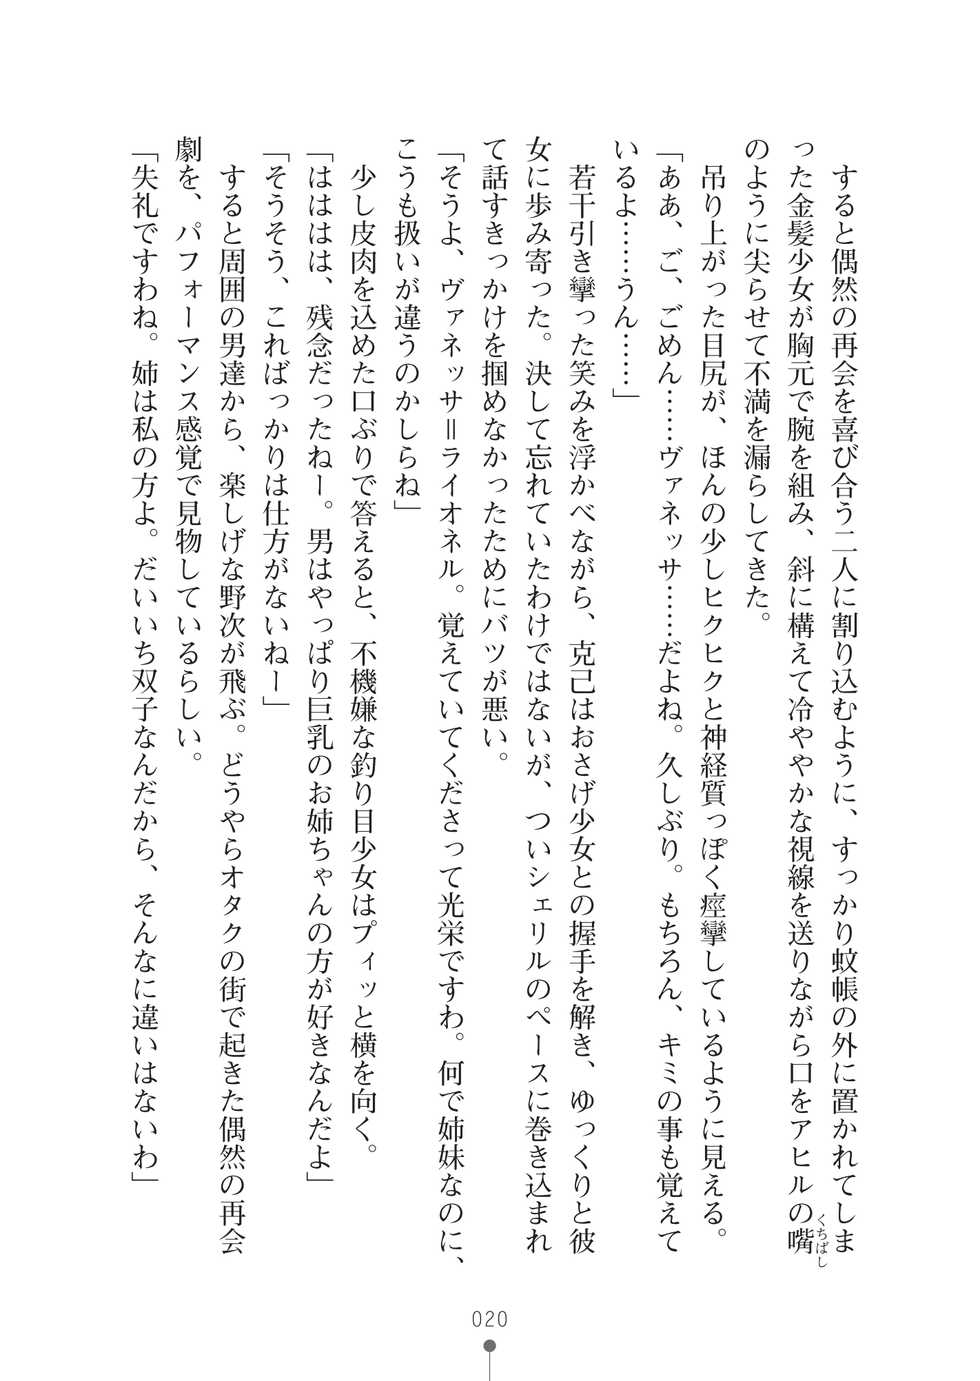 すると偶然の再会を喜び合う二人に割り込むように、すっかり蚊帳の外に置かれてしま
った金髪少女が胸元で腕を組み、斜に構えて冷ややかな視線を送りながら口をアヒルの嘴
くちばし
のように尖らせて不満を漏らしてきた。
吊り上がった目尻が、ほんの少しヒクヒクと神経質っぽく痙攣しているように見える。
「ああ、ご、ごめん……ヴァネッサ……だよね。久しぶり。もちろん、キミの事も覚えて
いるよ……うん……」
若干引き攣った笑みを浮かべながら、克己はおさげ少女との握手を解き、ゆっくりと彼
女に歩み寄った。決して忘れていたわけではないが、ついシェリルのペースに巻き込まれ
て話すきっかけを掴めなかったためにバツが悪い。
「そうよ、ヴァネッサ＝ライオネル。覚えていてくださって光栄ですわ。何で姉妹なのに、
こうも扱いが違うのかしらね」
少し皮肉を込めた口ぶりで答えると、不機嫌な釣り目少女はプィッと横を向く。
「はははは、残念だったねー。男はやっぱり巨乳のお姉ちゃんの方が好きなんだよ」
「そうそう、こればっかりは仕方がないねー」
すると周囲の男達から、楽しげな野次が飛ぶ。どうやらオタクの街で起きた偶然の再会
劇を、パフォーマンス感覚で見物しているらしい。
「失礼ですわね。姉は私の方よ。だいいち双子なんだから、そんなに違いはないわ」
020